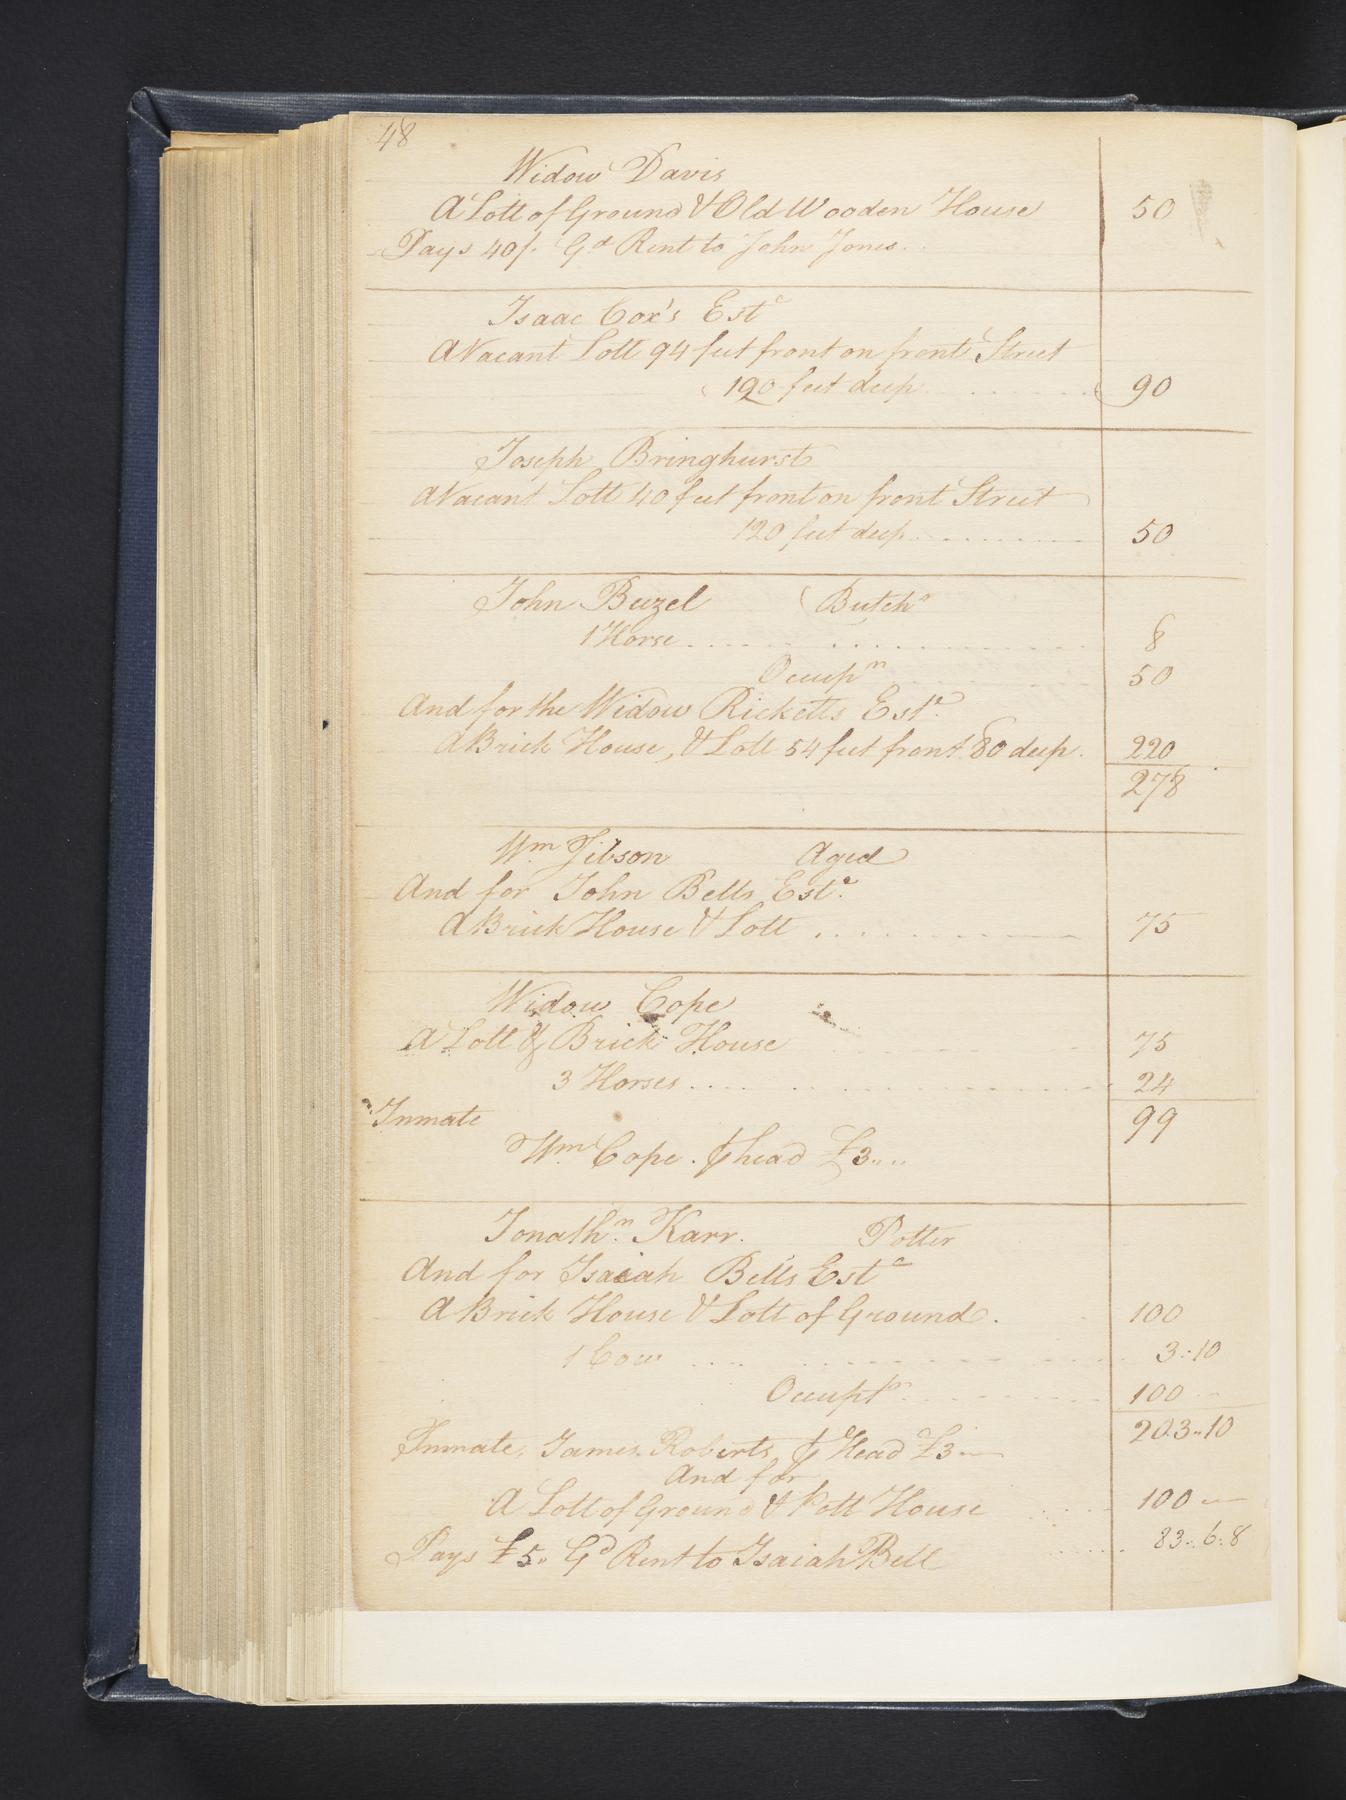 48
Widow Davis
A Lott of Ground & Old Wooden House 50
Pays 40/. Gd Rent to John Jones
Isaac Cox's Este
A Vacant Lott 94 feet front on front Street
190 feet deep 90
Joseph Bringhurst
A Vacant Lott 40 feet front on front Street
120 feet deep 50
John Buzel Butchr
1 Horse 8
Occupn 50
And for the Widow Ricketts Este
A Brick House, & Lott 54 feet front 80 deep. 220
278
Wm Jibson Aged
And for John Bells Este
A Brick House & Lott 75
Widow Cope
A Lott & Brick House 75
3 Horses 24
Inmate 99
Wm Cope. head £3
Jonathn Karr. Potter
And for Isaiah Bells Este
A Brick House & Lott of Ground. 100
1 Cow 3:10
Occuptn 100
203..10
Inmate, James Roberts, Head £3
And for
A Lott of Ground & Pott House 100
Pays £5.. Gd Rent to Isaiah Bell 83..6:8